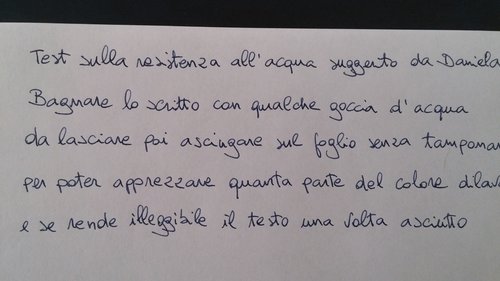 Test sulla resistenza all'acqua suggerito da Daniela
Bagnare lo scritto con qualche goccia d'acqua
da lasciare poi asciugare sul foglio senza tamponar
per poter apprezzare quanta parte del colore dilav
e se rende illeggibile il testo una volta asciutto